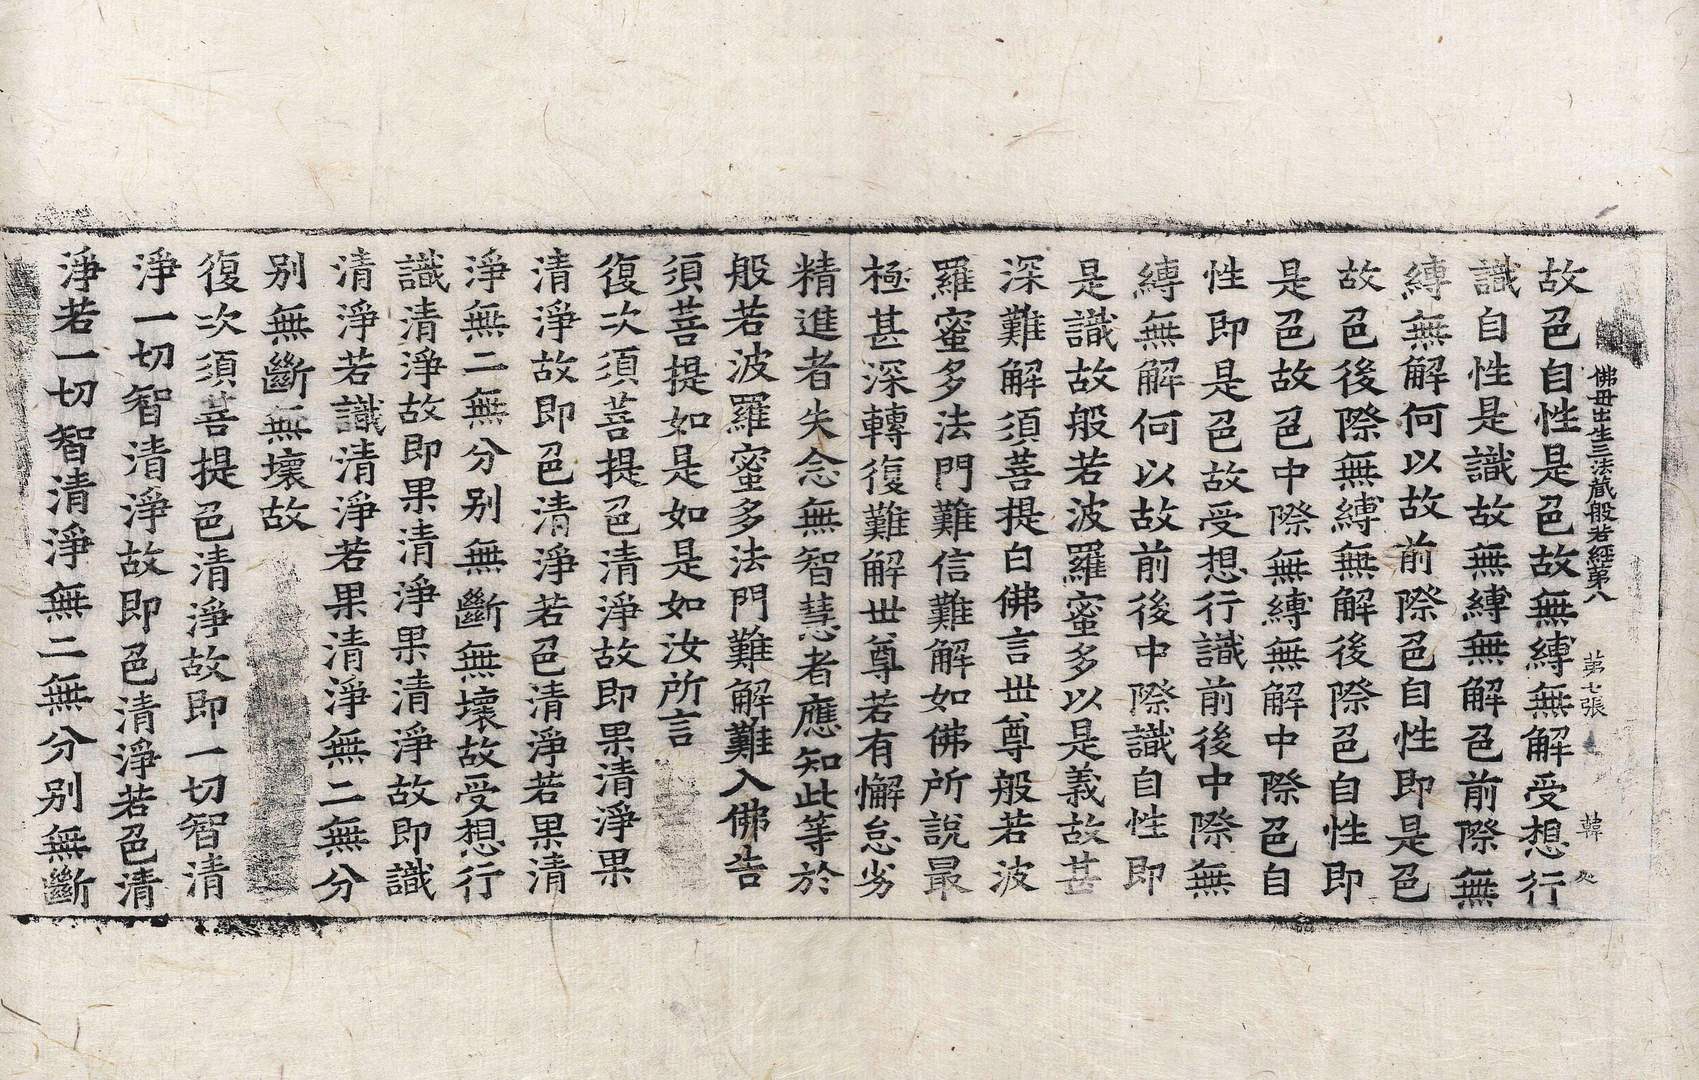 佛母出生三法藏般若經第八 第七張 韓
故色自性是色故無縛無解受想行
識自性是識故無縛無解色前際無
縛無解何以故前際色自性即是色
故色後際無縛無解後際色自性即
是色故色中際無縛無解中際色自
性即是色故受想行識前後中際無
縛無解何以故前後中際識自性即
是識故般若波羅蜜多以是義故甚
深難解須菩提白佛言世尊般若波
羅蜜多法門難信難解如佛所說最
極甚深轉復難解世尊若有懈怠劣
精進者失念無智慧者應知此等於
般若波羅蜜多法門難解難入佛告
須菩提如是如是如汝所言
復次須菩提色清淨故即果清淨果
清淨故即色清淨若色清淨若果清
淨無二無分別無斷無壞故受想行
識清淨故即果清淨果清淨故即識
清淨若識清淨若果清淨無二無分
別無斷無壞故
復次須菩提色清淨故即一切智清
淨一切智清淨故即色清淨若色清
淨若一切智清淨無二無分別無斷